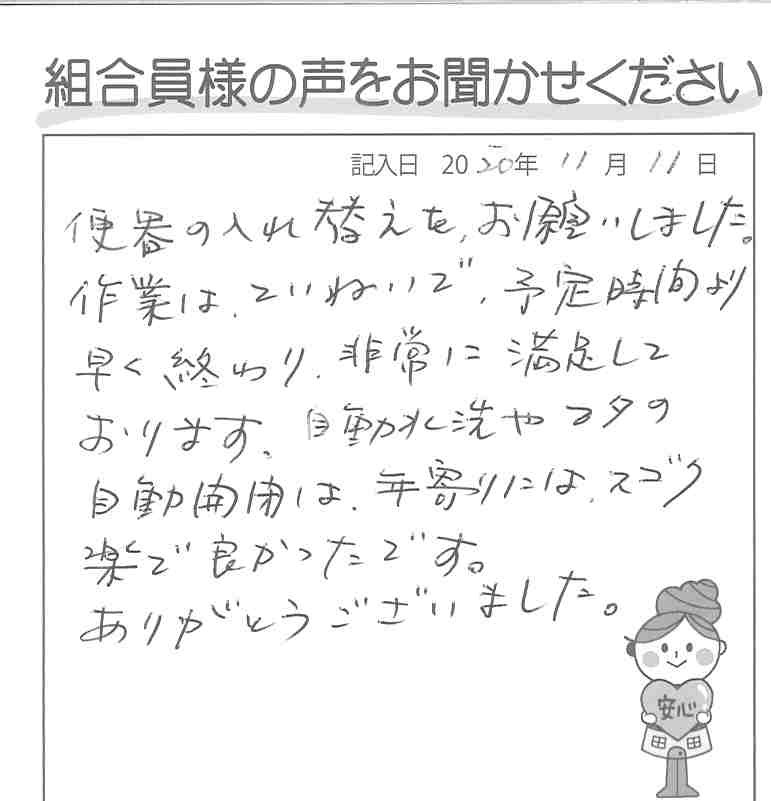 組合員様の声をお聞かせください
記入日 2020年 11月 11日
便器の入れ替えを、お願いしました。
作業は、ていねいで、予定時間より
早く終わり、非常に満足して
おります。自動水洗やフタの
自動開閉は、年寄りには、スゴク
楽で良かったです。
ありがとうございました。
安心